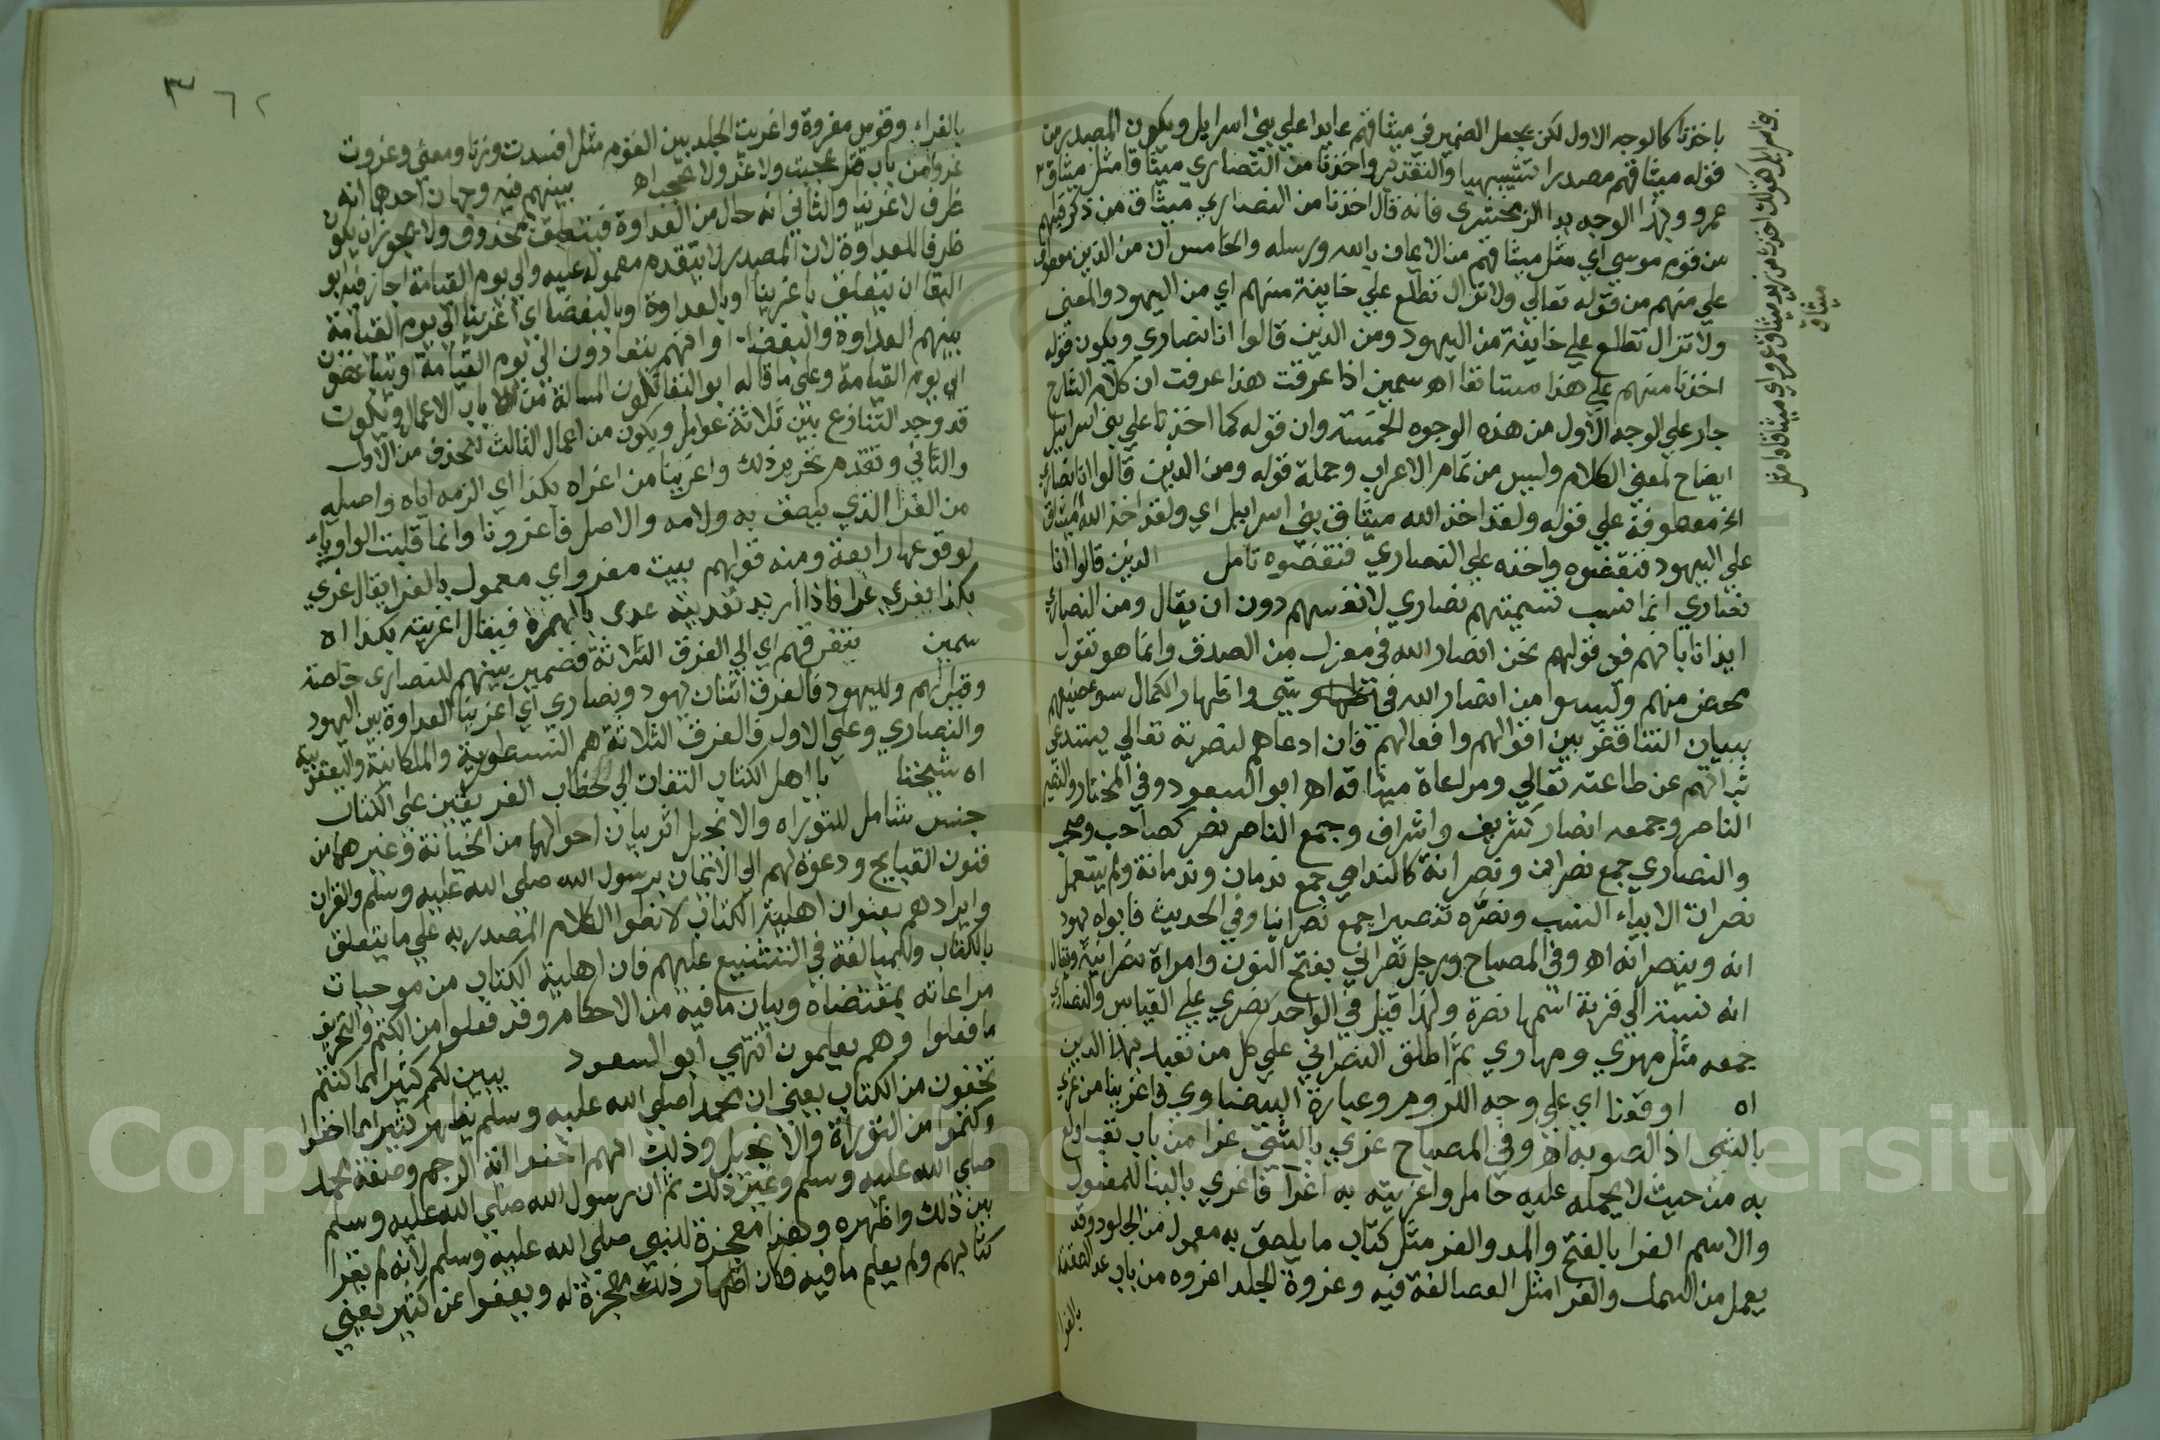 باخذنا كالوجه الاول لكن يجعل الضمير في ميثاقهم عايدا علي بني اسرايل ويكون المصدر من
قوله ميثاقهم مصدرا تشبيهيا والتقدير واخذنا من النصاري ميثاقا مثل ميثاق
عمرو وبهذا الوجه بدا الزمخشري فانه قال اخذنا من النصاري ميثاق من ذكر قبلهم
من قوم موسي اي مثل ميثاقهم من الايمان بالله ورسله والخامس ان من الذين معطوف
علي منهم من قوله تعالي ولا تزال تطلع علي خاينة منهم اي من اليهود والمعني
ولا تزال تطلع علي خاينة من اليهود ومن الذين قالوا انا نصاري ويكون قوله
اخذنا منهم علي هذا مستانفا اه سمين اذا عرفت هذا عرفت ان كلام الشارح
جار علي الوجه الاول من هذه الوجوه الخمسة وان قوله كما اخذنا علي بني اسرايل
ايضاح لمعني الكلام وليس من تمام الاعراب وجملة قوله ومن الذين قالوا انا نصاري
الخ معطوفة علي قوله ولقد اخذ الله ميثاق بني اسراييل اي ولقد اخذ الله ميثاق
علي اليهود فنقضوه واخذه علي النصاري فنقضوه تامل الذين قالوا انا
نصاري انما نسب تسميتهم نصاري لانفسهم دون ان يقال ومن النصاري
ايذانا بانهم في قولهم نحن انصار الله في معزل من الصدق وانما هو تقول
محض منهم وليسوا من انصار الله في شي واظهار الكمال سوء صنيعهم
ببيان التناقض بين اقوالهم وافعالهم فان ادعاهم لنصرته تعالي يستدعي
ثباتهم عن طاعته تعالي ومراعاة ميثاقه اه ابو السعود وفي المختار والنصير
الناصر وجمعه انصار كشريف واشراف وجمع الناصر نصر كصاحب وصحب
والنصاري جمع نصران ونصرانة كالندامي جمع ندمان وندمانة ولم يستعمل
نصران الا بياء النسب ونصره تنصيرا جمع نصرانيا وفي الحديث فابواه يهود
انه وينصرانه اه وفي المصباح ورجل نصراني بفتح النون وامراة نصرانية ويقال
انه نسبة الي قرية اسمها نصرة ولهذا قيل في الواحد نصري علي القياس والنصاري
جمعه مثل مهري ومهاري ثم اطلق النصراني علي كل من تعبد بهذا الدين
اه اوقعنا اي علي وجه اللزوم وعبارة البيضاوي فاغرينا من غري
بالشي اذ الصق به اه وفي المصباح غري بالشي غرا من باب تعب اولع
به من حيث لا يحمله عليه حامل واغريته به اغرا فاغري بالبنا للمفعول
والاسم الغرا بالفتح والمد والغر مثل كتاب ما يلصق به معمول من الجلود وقد
يعمل من السمك والغرا مثل العصا لغة فيه وغروة الجلد اغروه من باب عد الصقته
بالغرا
ميثاق
بالغراء وقوس مغروة واغريت الجلد بين القوم مثل افسدت وزنا ومعني وغروت
غروا من باب قتل عجبت ولا غرو لا عجب اه بينهم فيه وجهان احدهما انه
ظرف لاغرينا والثاني انه حال من العداوة فيتعلق بمحذوف ولا يجوز ان يكون
ظرفا للعداوة لان المصدر لا يتقدم معموله عليه والي يوم القيامة اجاز فيه ابو
البقا ان يتعلق باغرينا او بالعداوة وبالبغضا اي اغرينا الي يوم القيامة
بينهم العداوة والبغضا او انهم يتعادون الي يوم القيامة او يتباغضون
الي يوم القيامة وعلي ما قاله ابو البقا تكون المسالة من باب الاعمال ويكون
قد وجد التنازع بين ثلاثة عوامل ويكون من اعمال الثالث للحذف من الاول
والثاني وتقدم تحرير ذلك واغرينا من اغراه بكذا اي الزمه اياه واصله
من الغرا الذي يلصق به ولامه والاصل فاغرونا وانما قلبت الواو ياء
لوقوعها رابعة ومنه قولهم بيت مغرو اي معمول بالغرا يقال غري
بكذا يغري غرا فاذا اريد تعديته عدي بالهمزة فيقال اغريته بكذا اه
سمين بتفرقهم اي الي الفرق الثلاثة فضمير بينهم للنصاري خاصة
وقيل لهم ولليهود فالفرق اثنان يهود ونصاري اي اغرينا العداوة بين اليهود
والنصاري وعلي الاول فالفرق الثلاثة هم النسطورية والملكانية واليعقوبية
اه شيخنا يا اهل الكتاب التفات الي خطاب الفريقين علي الكتاب
جنس شامل للتوراه والانجيل اثر بيان احوالهما من الخيانة وغيرهما من
فنون القبايح ودعوة لهم الي الايمان برسول الله صلي الله عليه وسلم والقران
وايرادهم بعنوان اهلية الكتاب لانطوا الكلام المصدر به علي ما يتعلق
بالكتاب وللمبالغة في التشنيع عليهم فان اهلية الكتاب من موجبات
مراعاته بمقتضاه وبيان ما فيه من الاحكام وقد فعلوا من الكتم والتحريف
ما فعلوا وهم يعلمون انتهي ابو السعود يبين لكم كثيرا مما كنتم
تخفون من الكتاب يعني ان محمدا صلي الله عليه وسلم يظهر كثيرا مما اخفوا
وكتموا من التوراة والانجيل وذلك انهم اخفوا اية الرجم وصفة محمد
صلي الله عليه وسلم وغير ذلك ثم ان رسول الله صلي الله عليه وسلم
بين ذلك واظهره وهذا معجزة للنبي صلي الله عليه وسلم لانه لم يقرا
كتابهم ولم يعلم ما فيه فكان اظهار ذلك معجزة له ويعفوا عن كثير يعني